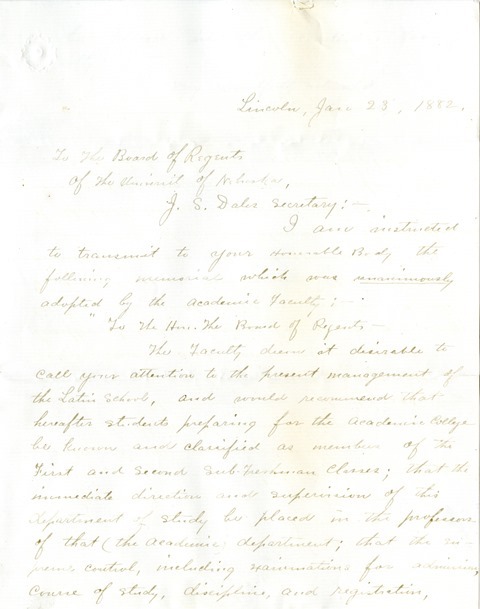 Lincoln, Jan 23, 1882.
To The Board of Regents
Of The of Nebraska,
J. S. Dales Secretary:—
I am instructed
to transmit to your Honorable Body the
following memorial which was unanimously
adopted by the Academic Faculty;—
"To The Hon. The Board of Regents—
The Faculty deem it desirable to
call your attention to the present management of
the Latin School, and would recommend that
hereafter students preparing for the Academic College
be known and classified as members of the
First and Second Sub-Freshman Classes; that the
immediate direction and supervision of this
department of study be placed in the professors
of that (the Academic) department; that the
control, including examinations for admission,
course of study, discipline, and registration,